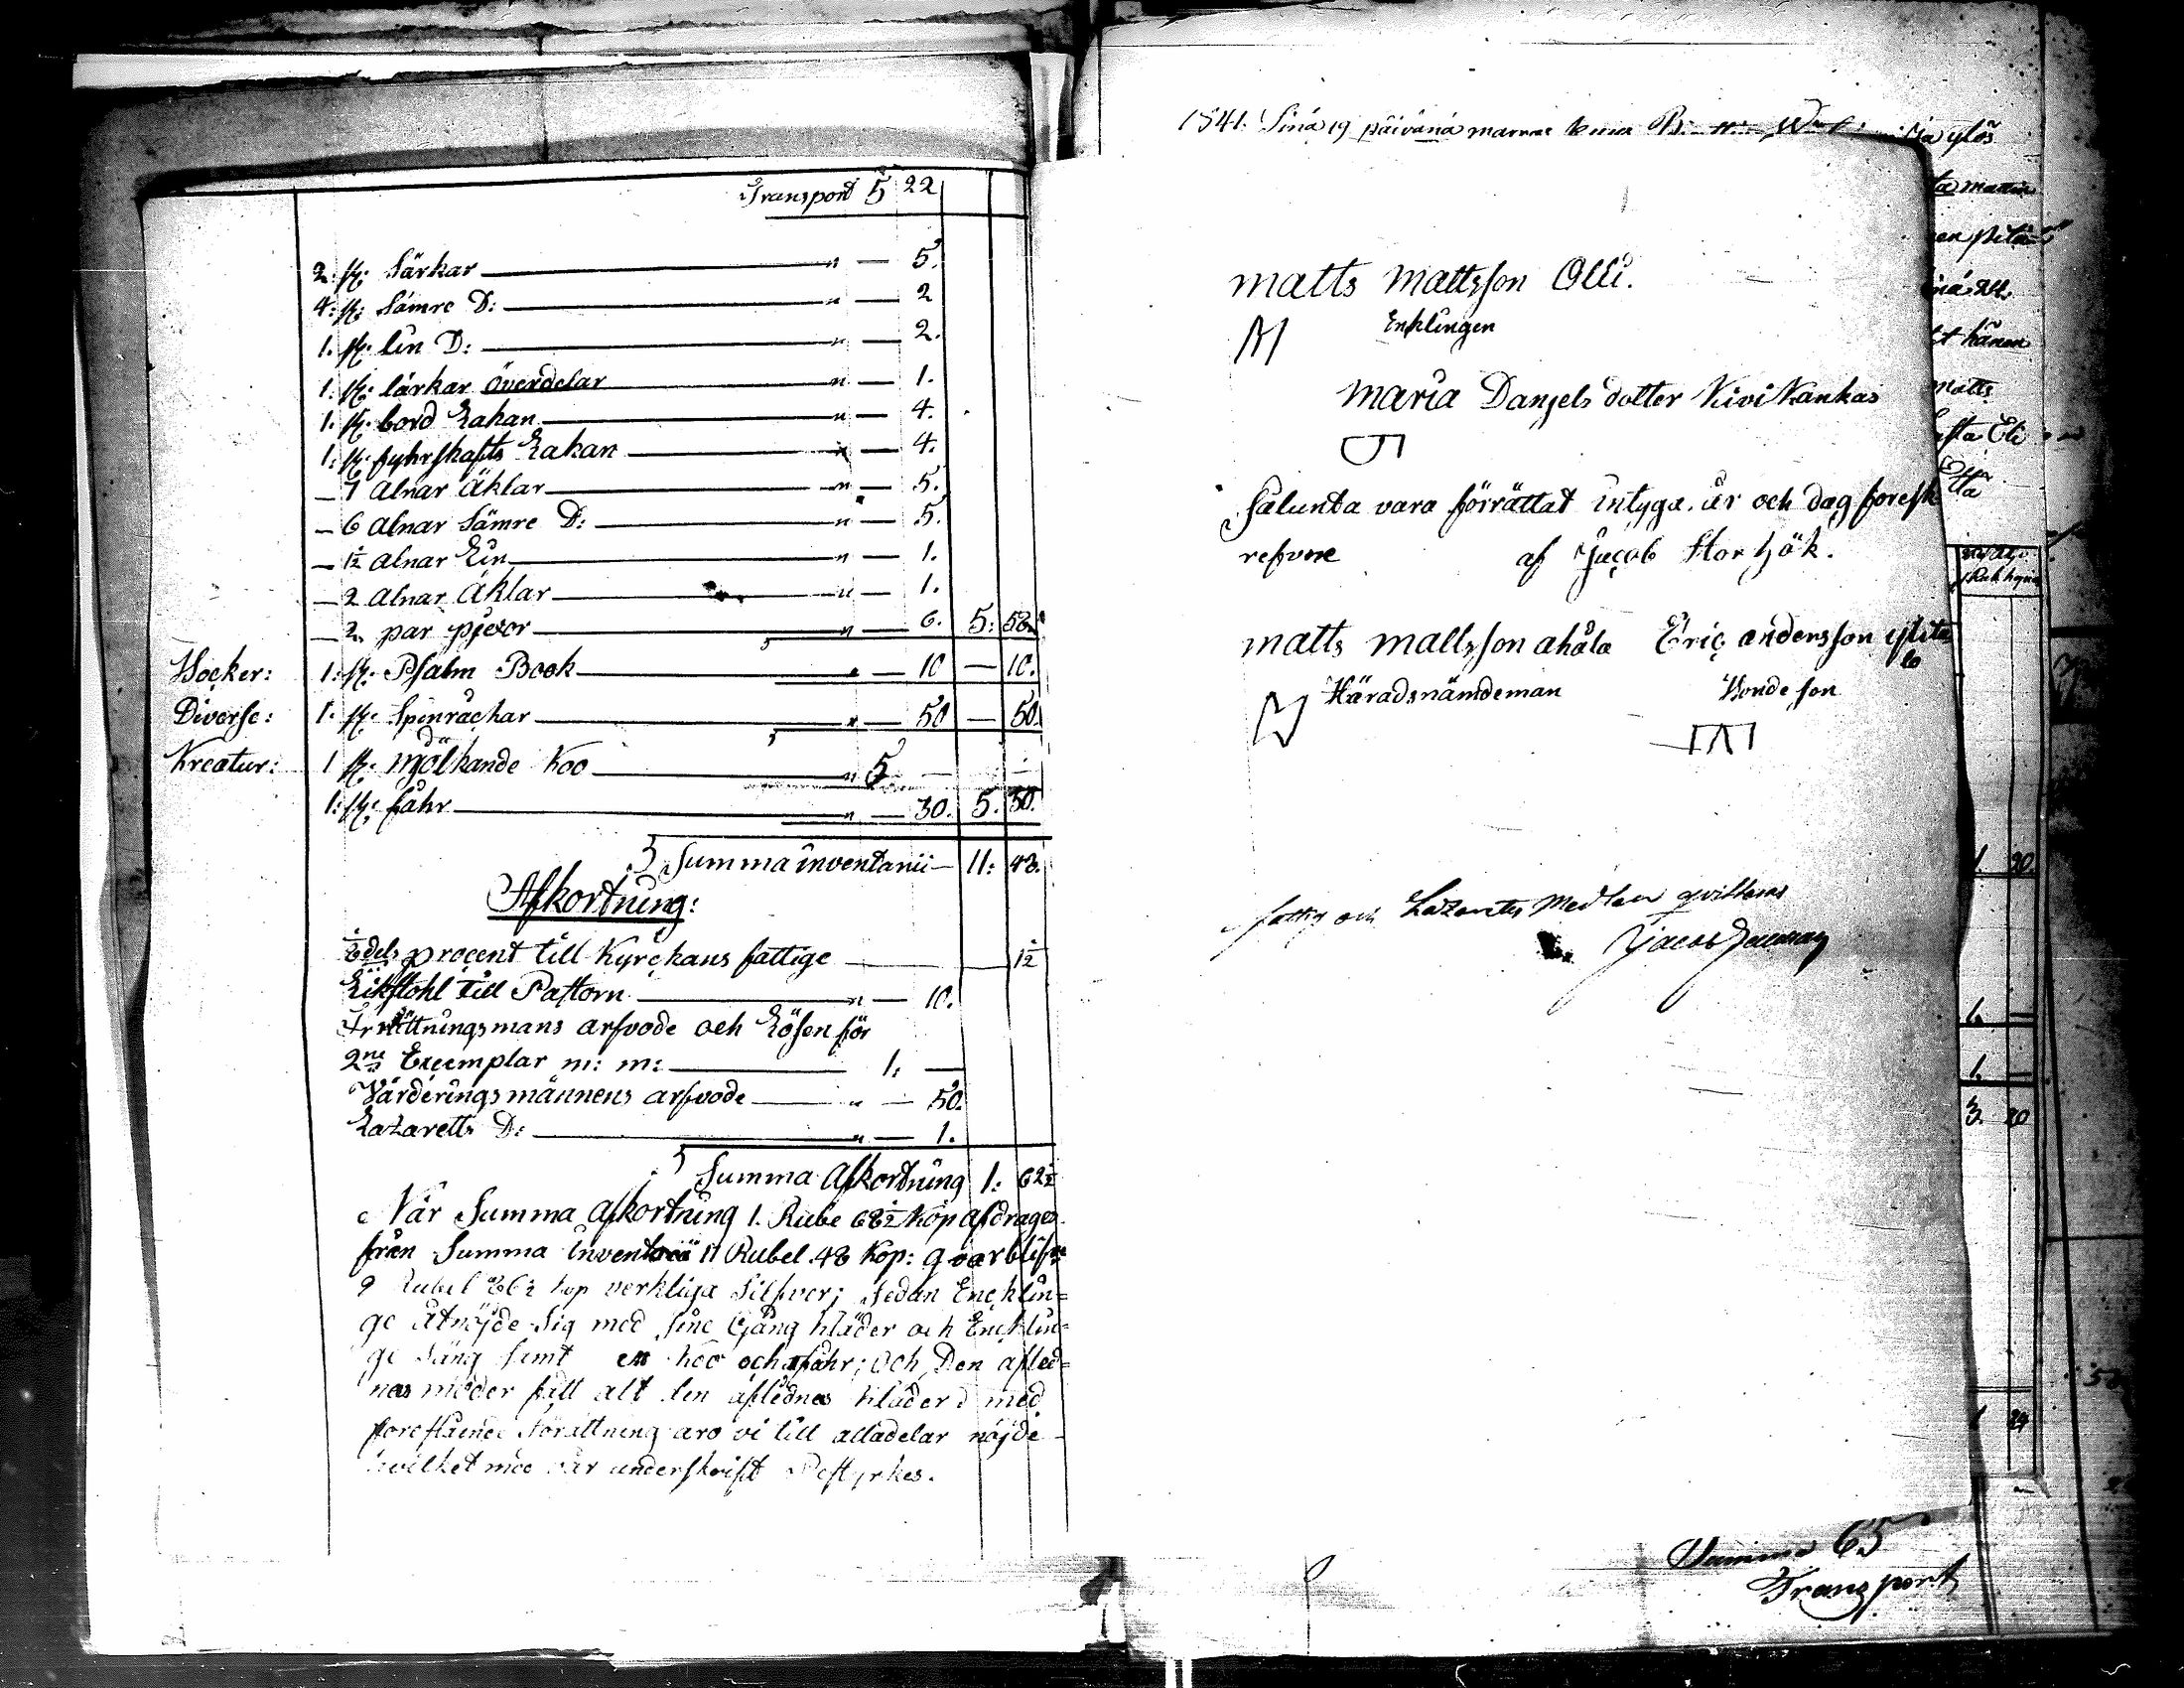 Transport 5 22
2: st: Särkar — " — 5.
4: st: Sämre D: — " — 2
1. st: lin D: — " — 2.
1. st: lärkar överdelar — " — 1.
1. st: bord Lakan — " — 4.
1: st: fyhrskafts Lakan — " — 4.
— 7 alnar Äklar — " — 5.
— 6 alnar Sämre D: — " — 5.
— 1½ alnar Lin — " — 1.
— 2 alnar Äklar — " — 1.
— 2 par pjexor — " — 6. 5: 58
Böcker: 1: st: Psalm Book — " — 10 — 10.
Diverse: 1. st: Spinråckar — " — 50 — 50.
Kreatur: 1 st: mjölkande Koo — " 5. —
1: st: fåhr — " — 30. 5. 30.
Summa inventarii — 11: 48.
Afkortning:
½ dels procent till Kyrckans fattige — 1½
Likstohl till Pastorn — " — 10.
rättningsmans arfvode och Lösen för
2ne Exemplar m: m: — 1. —
Värderingsmännens arfvode — " — 50.
Lazaretts D: — " — 1.
Summa Afkortning 1: 62½
När Summa afkortning 1. Rube 62½ Kop afdrages
från Summa inventarii 11 Rubel 48 Kop: qvarblifve
9 Rubel 86½ kop verkliga Silfver; sedan Encklin=
ge åtnöjde Sig med sine Gång kläder och Encklin=
ge Säng samt en koo och fåhr; och Den afled=
nas moder fått alt den aflednas kläder med
forestående förättning äro vi till alladelar nöjde
hvilket med vår underskrift Bestyrkes.
1841. Sinä 19 päivänä marras kuua
ja ylös
matts Mattsson Olli.
Enklingen
Maria Danjels dotter Kivikankas
Sålunda vara förrättat intyga. år och dag foresk
refvne af Jacob Storhök.
matts mattsson ahåla Eric andersson ylita
lo
Häradsnämdeman Bonde son
fattig och Lazaretts Medlen qvitteras
Jacob
ta mattin
nä 24.
hänen
matts
1. 20.
1. —
3. 20
24
Summa 65
Transport